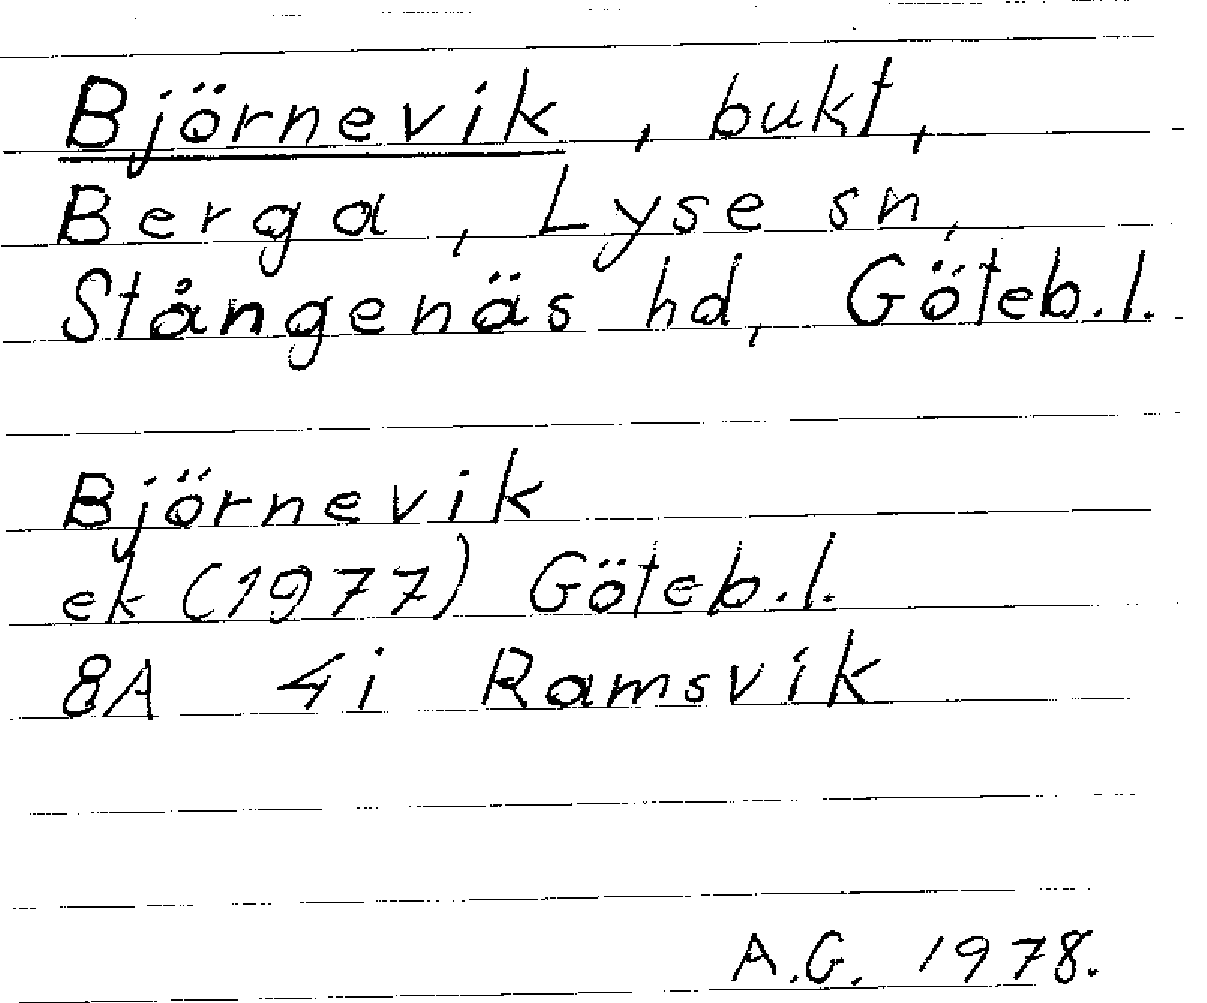 Björnevik, bukt,
Berga, Lyse sn,
Stångenäs hd, Göteb.l.
Björnevik
ek (1977) Göteb.l.
8A 4i Ramsvik
A.G. 1978.